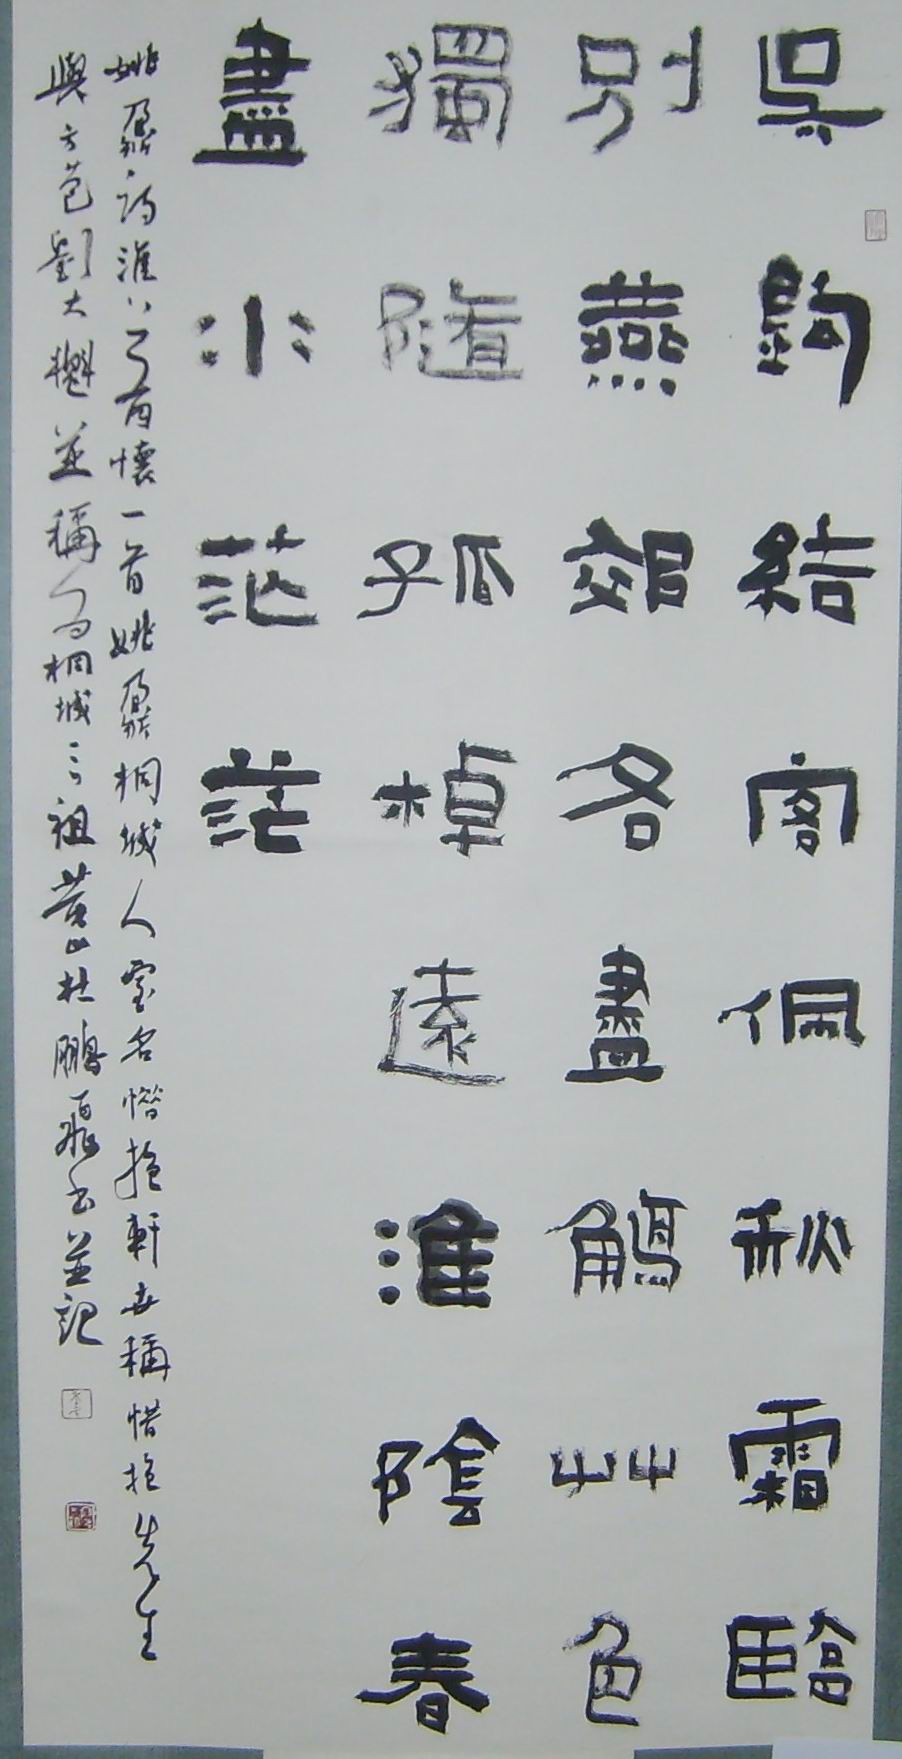 吳鉤結客佩秋霜臨
別燕郊各盡觴艸色
獨隨孤棹遠淮陰春
盡水茫茫
姚鼐詩淮上有懷一首姚鼐桐城人室名惜抱軒世稱惜抱先生
與方苞劉大櫆並稱為桐城三祖黃山杜鵬飛書並記